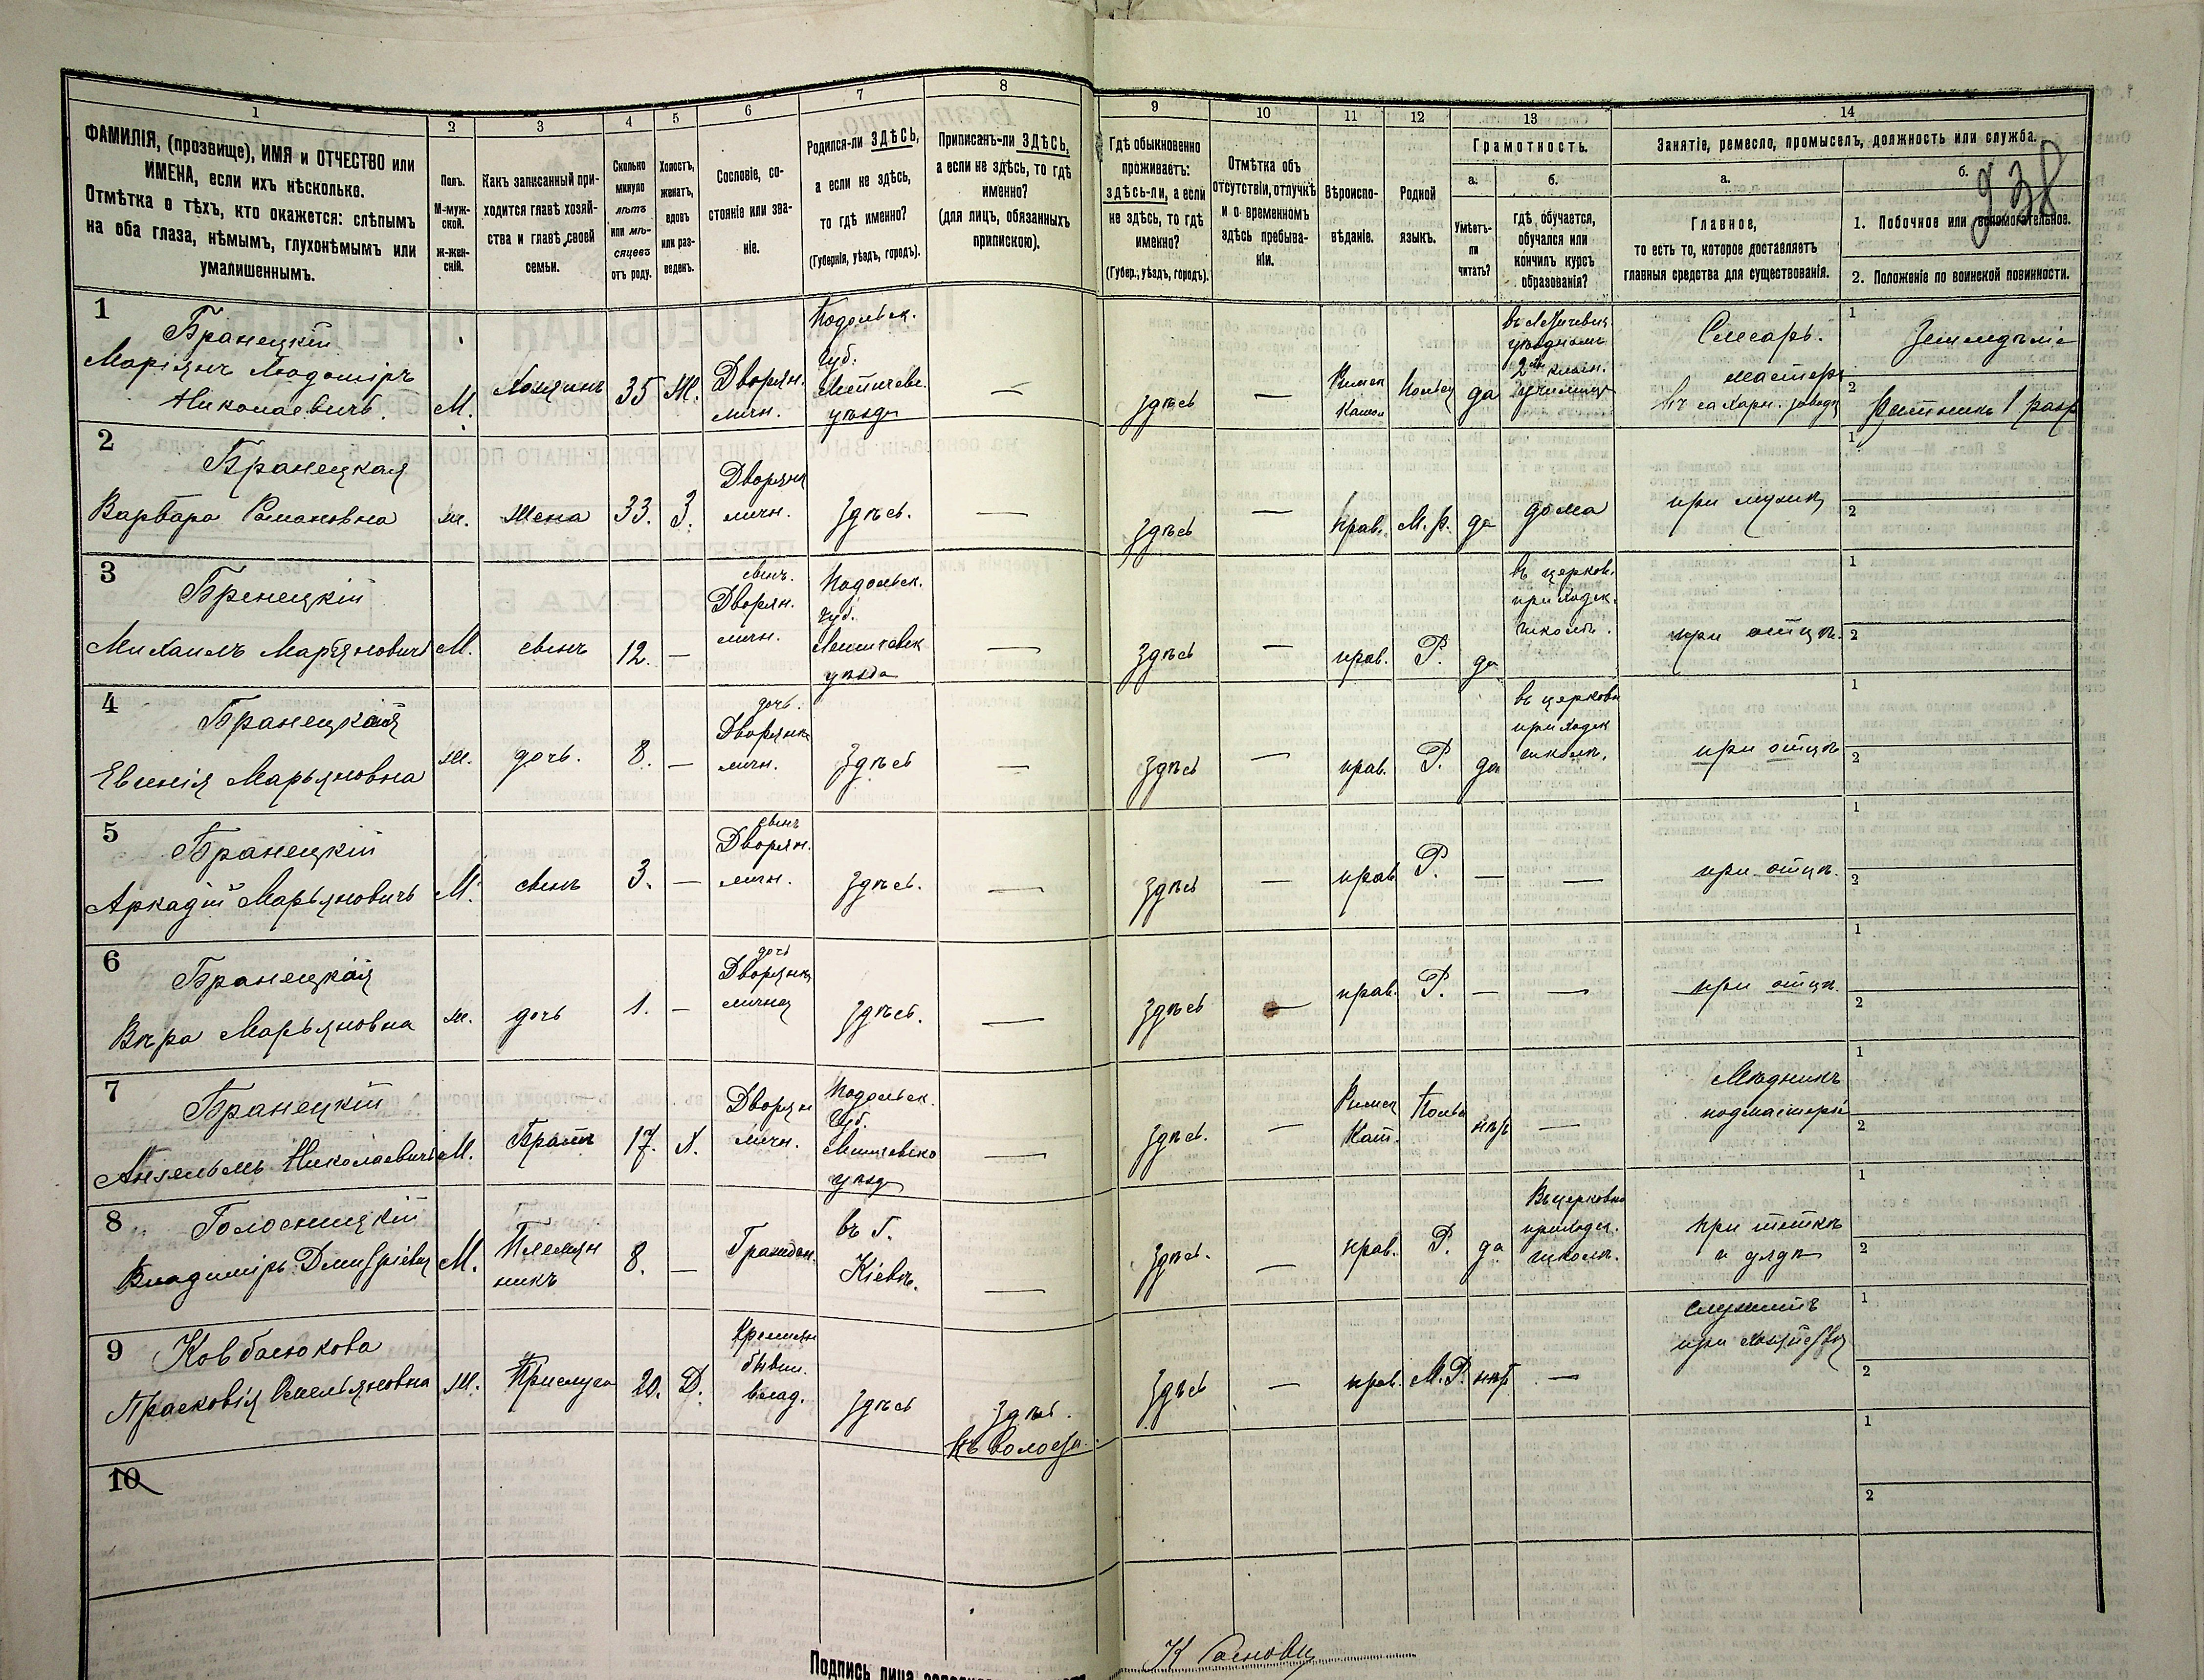 1
2
3
4
5
6
7
8
9
10
11
12
13
14
ФАМИЛІЯ, (прозвище), ИМЯ и ОТЧЕСТВО или
ИМЕНА, если ихъ нѣсколько.
Отмѣтка о тѣхъ, кто окажется: слѣпымъ
на оба глаза, нѣмымъ, глухонѣмымъ или
умалишеннымъ.
Полъ.
М-муж-
ской.
ж-жен-
скій.
Какъ записанный при-
ходится главѣ хозяй-
ства и главѣ своей
семьи.
Сколько
минуло
лѣтъ
или мѣ-
сяцевъ
отъ роду.
Холостъ,
женатъ,
вдовъ
или раз-
веденъ.
Сословіе, со-
стояніе или зва-
ніе.
Родился-ли ЗДѢСЬ,
а если не здѣсь,
то гдѣ именно?
(Губернія, уѣздъ, городъ).
Приписанъ-ли ЗДѢСЬ,
а если не здѣсь, то гдѣ
именно?
(для лицъ, обязанныхъ
припискою).
Гдѣ обыкновенно
проживаетъ:
здѣсь-ли, а если
не здѣсь, то гдѣ
именно?
(Губер., уѣздъ, городъ).
Отмѣтка объ
отсутствіи, отлучкѣ
и о временномъ
здѣсь пребыва-
ніи.
Вѣроиспо-
вѣданіе.
Родной
языкъ.
Грамотность.
а.
Умѣетъ-
ли
читать?
б.
гдѣ, обучается,
обучался или
кончилъ курсъ
образованія?
Занятіе, ремесло, промыселъ, должность или служба.
а.
Главное,
то есть то, которое доставляетъ
главныя средства для существованія.
б.
938
1. Побочное или вспомогательное.
2. Положеніе по воинской повинности.
1
Бранецкій
Маріянъ Людомиръ
Николаевичъ.
М.
Хозяинъ
35
Ж.
Дворян.
личн.
Подольск.
Губ.
Летичевс.
уѣзда
—
здѣсь
—
Римск
Катол
Польск
да
въ Летичевск.
уѣздномъ
2хъ класн.
училищѣ
Слесарь.
мастеръ
въ сахарн. заводѣ
1
Земледѣліе
2
Ратникъ 1 разр
2
Бранецкая
Варвара Романовна
ж.
жена
33.
З.
Дворянк
личн.
Здѣсь.
—
здѣсь
—
прав.
М.р.
да
дома
при мужѣ
1
2
3
Бренецкій
Михаилъ Марьяновичъ
М.
сынъ
12.
—
сынъ.
Дворян.
личн.
Подольск.
Губ.
Летичевск
уѣзда
—
здѣсь
—
прав.
Р.
да
въ церков.
приходск.
школѣ.
при отцѣ.
1
2
4
Бранецкая
Евгенія Марьяновна
ж.
дочь.
8.
—
дочь.
Дворянка
личн.
Здѣсь
—
здѣсь
—
прав.
Р.
да
въ церковн
приходск
школѣ.
при отцѣ
1
2
5
Бранецкій
Аркадій Марьяновичъ
М.
сынъ
3.
—
сынъ
Дворян.
личн.
Здѣсь.
—
здѣсь
—
прав
Р.
—
—
при отцѣ.
1
2
6
Бранецкая
Вѣра Марьяновна
ж.
дочь
1.
—
дочь
Дворянка
личная
Здѣсь.
—
здѣсь
—
прав.
Р.
—
—
при отцѣ.
1
2
7
Бранецкій
Ансельмъ Николаевичъ
М.
Братъ
17.
Х.
Дворян
личн.
Подольск.
Губ.
Летичевско
уѣзд
—
здѣсь.
—
Римск
Кат.
Польс
нѣт
—
Мѣдникъ
подмастерье
1
2
8
Голосницкій
Владиміръ Дмитріевич
М.
Племян
никъ
8.
—
Граждан.
въ Г.
Кіевѣ.
—
здѣсь.
—
прав.
Р.
да
Въ церковно
приходск.
школѣ.
при теткѣ
и дядѣ
1
2
9
Ковбасюкова
Прасковія Емельяновна
ж.
Прислуга
20.
Д.
Крестьян
бывш.
влад.
Здѣсь
Здѣсь.
къ волости.
здѣсь
—
прав.
М.Р.
нѣт
—
служитъ
при хозяйствѣ
1
2
10
1
2
Подпись лица